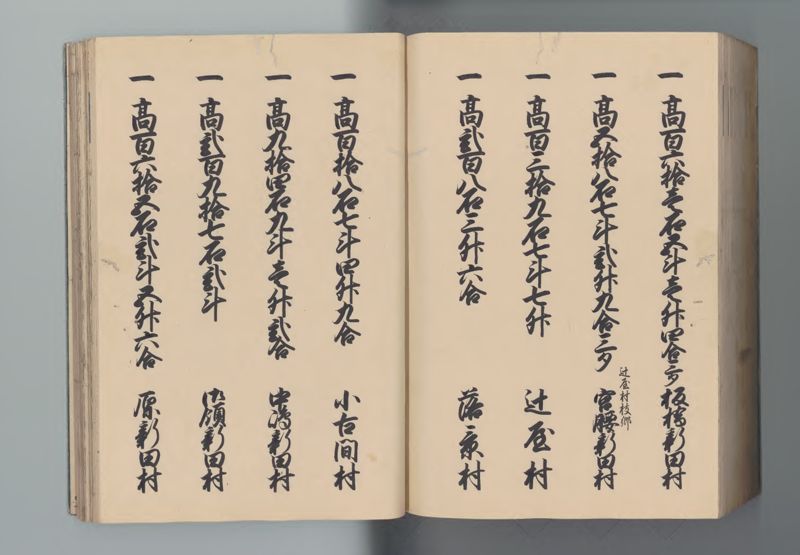 一 高百六拾壱石五斗壱升四合三夕 板橋新田村
一 高五拾八石七斗弐升九合三夕 宮腰新田村
辻屋村枝郷
一 高百三拾九石七斗七升 辻屋村
一 高弐百八石三升六合 落 村
一 高百拾八石七斗四升九合 小古間村
一 高九拾四石九斗壱升弐合 中嶋新田村
一 高弐百九拾七石弐斗 新田村
一 高百六拾五石弐斗五升六合 原新田村